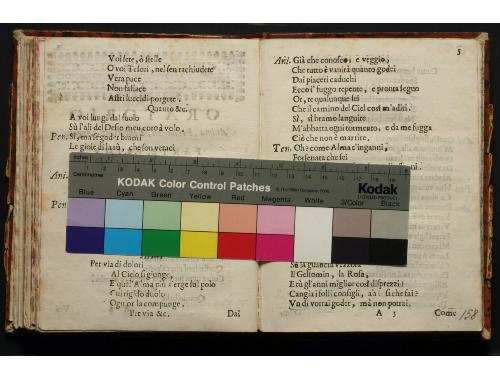 Voi sete, ò stelle
O voi Tesori, nel sen rachiudete
Vera pace
Non fallace
Astri lucidi porgete.
Quanto &c.
A voi lungi dal suolo
Sù l'ali del Desio meu corò à volo,
Pen. Sì, ma se goder brami
Le gioie di lasù, che son veraci
Ani.
Pen.
Per via di dolori
Al Cielo si giunge,
E quell'Alma più s'erge sul polo
Cui rigido duolo
Ogn'or la compunge.
Per via &c.
Dal
5
Ani. Già che conosco, e veggio,
Che tutto è vanità quanto godei
Dai piaceri caduchi
Ecco i' fuggo repente, e pronta seguo
Or, te qualunque sei
Che il camino del Ciel così m'additi.
Sì, sì bramo languire
M'abbatta ogni tormento, e da me fugga
Ciò che non è martire.
Ten. Oh! come Alma t'inganni,
Forsenata che sei
Sù la guancia vezzosa
Il Gelsomin, la Rosa,
E tù gl'anni miglior così disprezzi?
Cangia i folli consigli, ah! sì che fai?
Vn dì vorrai goder, ma non potrai.
A 3
Come
158
Inches
Centimetres
KODAK Color Control Patches
© The Tiffen Company, 2000
Kodak
LICENSED PRODUCT
Blue
Cyan
Green
Yellow
Red
Magenta
White
3/Color
Black